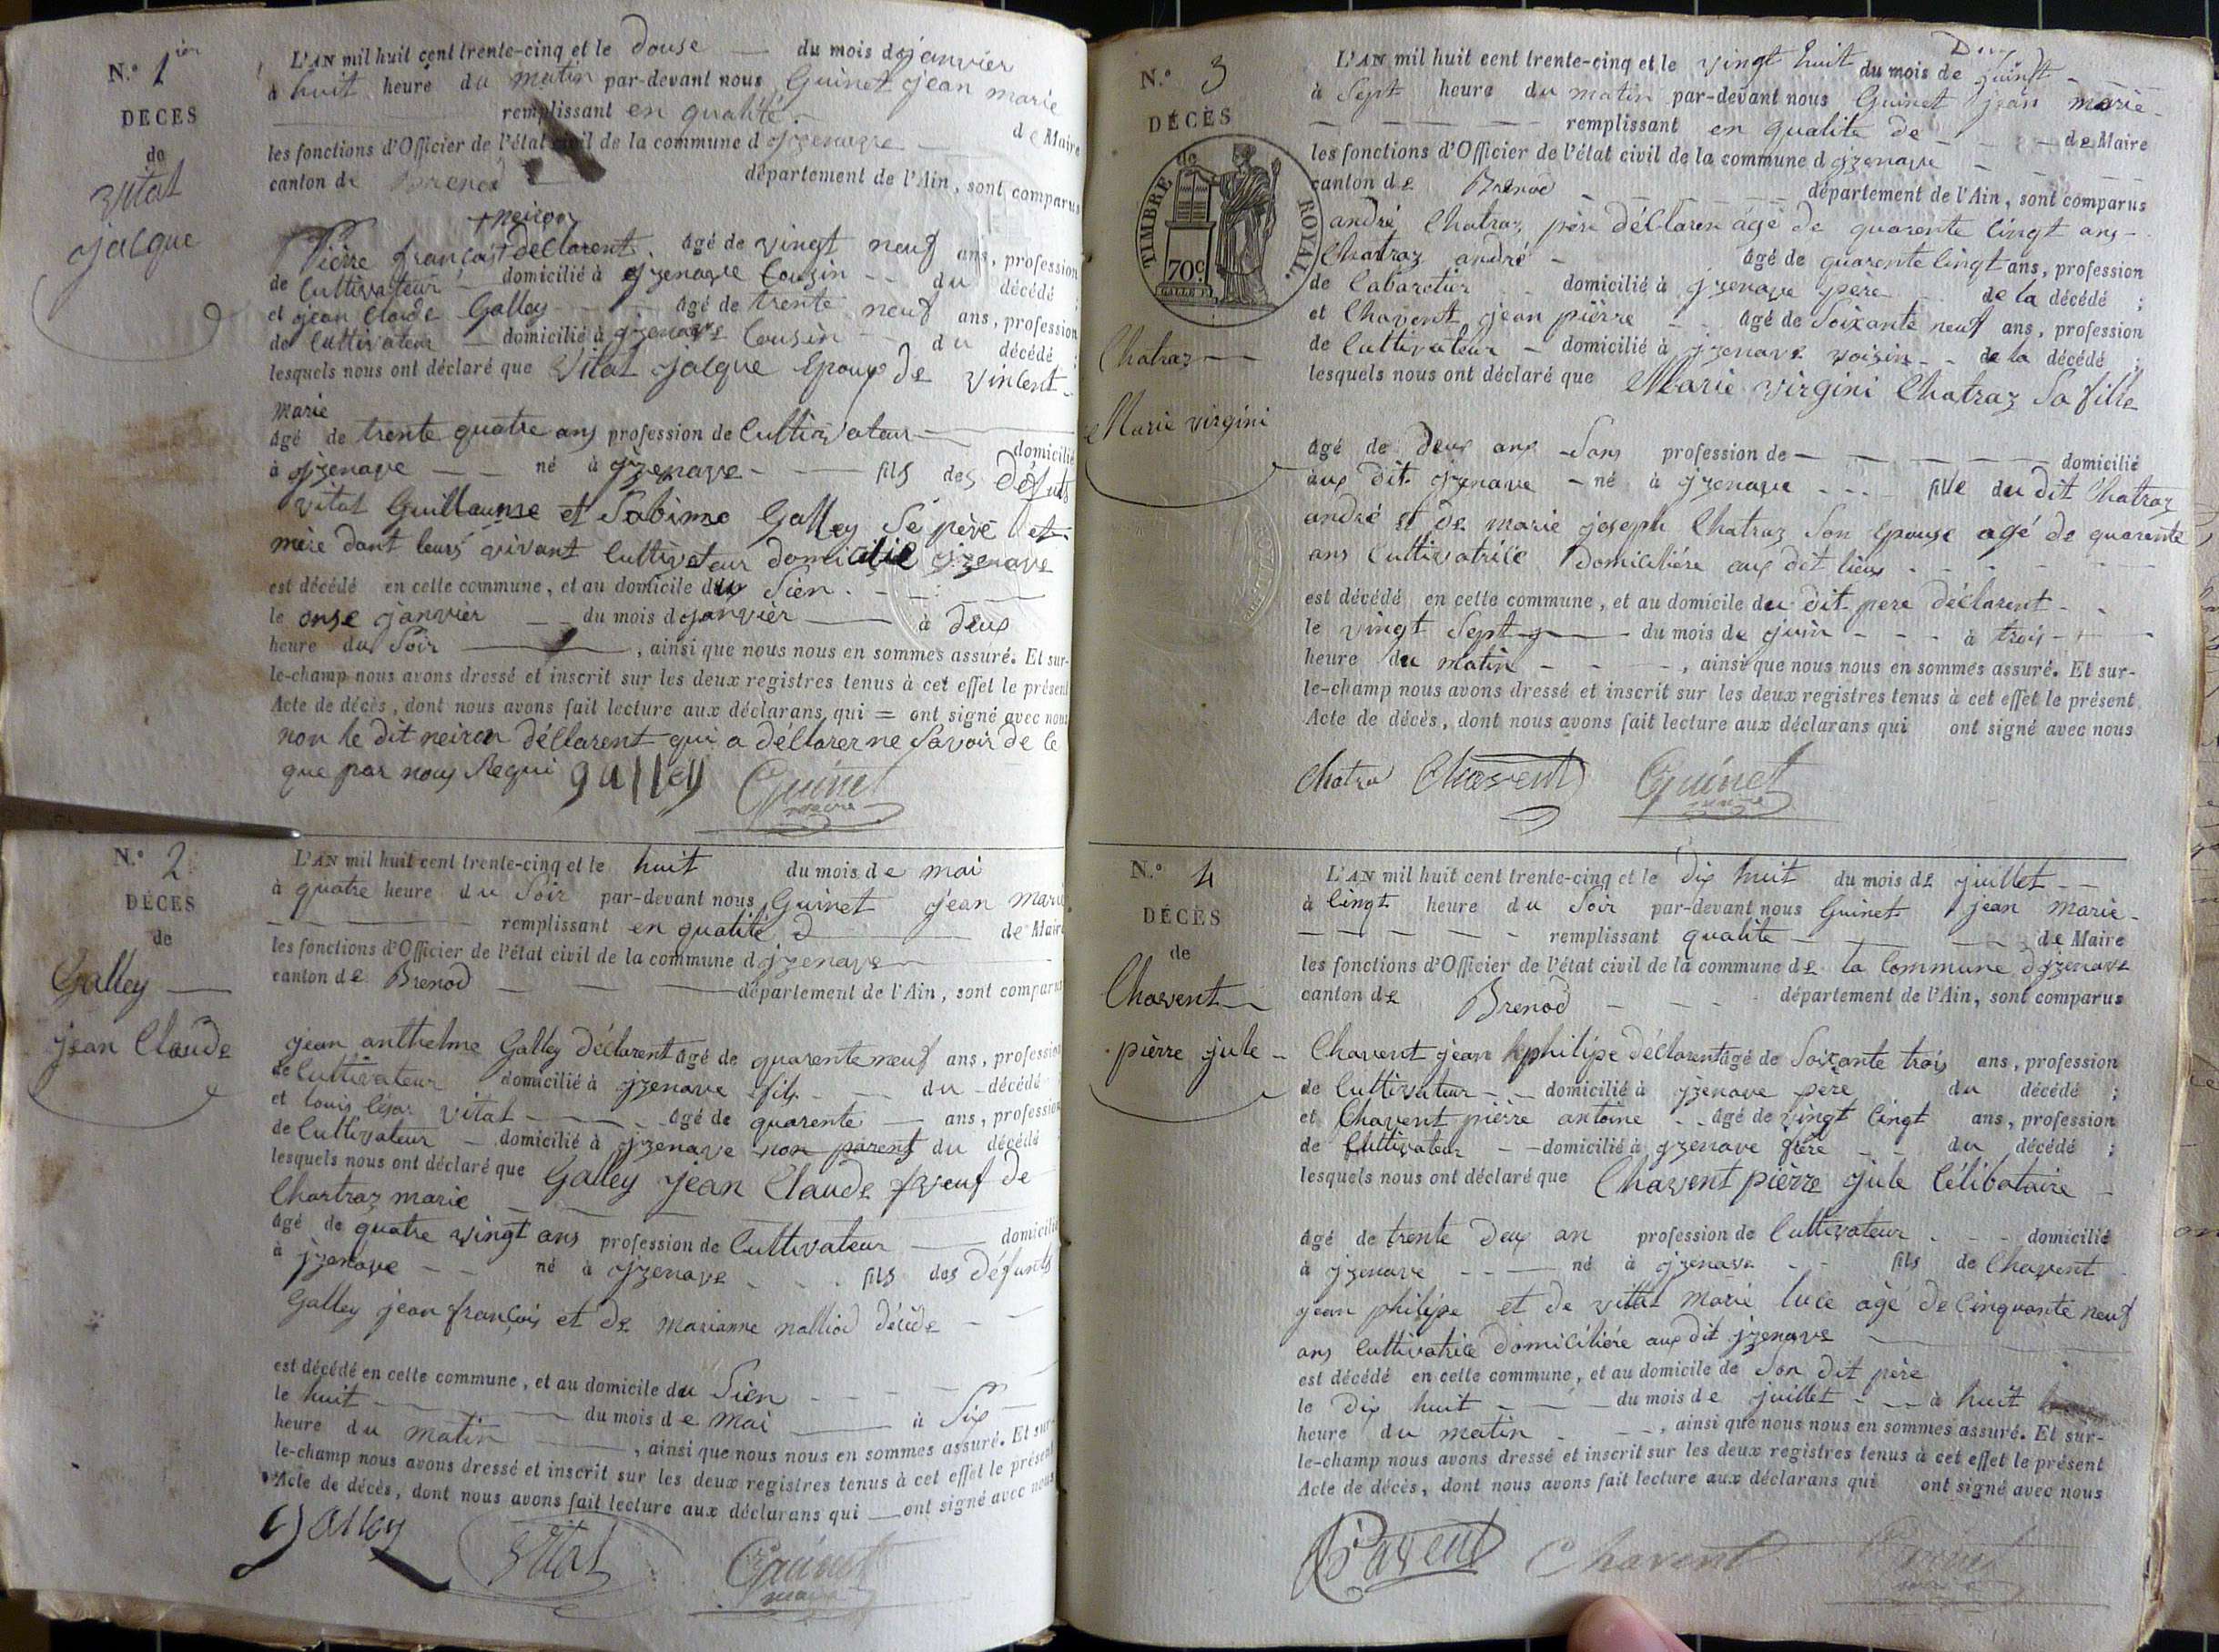 N.º 1ier
DECES
de
vitat
jacque
L'AN mil huit cent trente-cinq et le douse du mois de janvier
à huit heure du matin par-devant nous Guinet jean marie
remplissant en qualité de Maire
les fonctions d'Officier de l'état civil de la commune d jzenave
canton de Brenod département de l'Ain, sont comparus
+ neiron
Pierre françois + déclarent agé de vingt neuf ans, profession
de Cultivateur domicilié à jzenave Cousin du décédé ;
et jean Claude Galley agé de trente neuf ans, profession
de Cultivateur domicilié à jzenave Cousin du décédé ;
lesquels nous ont déclaré que Vitat jacque Epoux de vincent
marie
agé de trente quatre ans profession de Cultivateur domicilié
à jzenave né à jzenave fils des défunts
vitat Guillaume et Sabime Galley Sé père et
mère dont leurs vivant Cultivateur domicilié jzenave
est décédé en cette commune, et au domicile du Sien
le onse janvier du mois d janvier à deux
heure du Soir , ainsi que nous nous en sommes assuré. Et sur-
le-champ nous avons dressé et inscrit sur les deux registres tenus à cet effet le présent
Acte de décès, dont nous avons fait lecture aux déclarans qui = ont signé avec nous
non le dit neiron déclarent qui a déclarer ne Savoir de Ce
que par nous Requi galley Guinet
maire
N.º 2
DÉCÈS
de
Galley
jean Claude
L'AN mil huit cent trente-cinq et le huit du mois de mai
à quatre heure du Soir par-devant nous Guinet jean marie
remplissant en qualité d de Maire
les fonctions d'Officier de l'état civil de la commune d jzenave
canton de Brenod département de l'Ain, sont comparus
jean anthelme Galley déclarent agé de quarente neuf ans, profession
de Cultivateur domicilié à jzenave fils du décédé
et louis César vitat agé de quarente ans, profession
de Cultivateur domicilié à jzenave non parent du décédé
lesquels nous ont déclaré que Galley jean Claude veuf de
Chartraz marie
agé de quatre vingt ans profession de Cultivateur domicilié
à jzenave né à jzenave fils des défunts
Galley jean françois et de marianne nalliod décédé
est décédé en cette commune, et au domicile du Sien
le huit du mois de mai à Six
heure du matin , ainsi que nous nous en sommes assuré. Et sur-
le-champ nous avons dressé et inscrit sur les deux registres tenus à cet effet le présent
Acte de décès, dont nous avons fait lecture aux déclarans qui ont signé avec nous
galley vitat Guinet
maire
N.º 3
DÉCÈS
de
TIMBRE ROYAL.
70c.
Chatraz
Marie virgini
L'AN mil huit cent trente-cinq et le vingt huit du mois de juin
à Sept heure du matin par-devant nous Guinet jean marie
remplissant en qualite de de Maire
les fonctions d'Officier de l'état civil de la commune d jzenave
canton de Brenod département de l'Ain, sont comparus
andré Chatraz père déclaren agé de quarente Cingt ans
Chatraz andré agé de quarente Cingt ans, profession
de Cabaretier domicilié à jzenave père de la décédé ;
et Chavent jean pièrre agé de Soixante neuf ans, profession
de Cultivateur domicilié à jzenave voisin de la décédé ;
lesquels nous ont déclaré que Marie virgini Chatraz Sa fille
agé de deux ans Sans profession de domicilié
aux dit jzenave né à jzenave fille du dit Chatraz
andré et de marie joseph Chatraz Son Epouse agé de quarente
ans Cultivatrice domiciliére aux dit lieux
est décédé en cette commune, et au domicile du dit pere déclarent
le vingt Sept du mois de juin à trois
heure du matin , ainsi que nous nous en sommes assuré. Et sur-
le-champ nous avons dressé et inscrit sur les deux registres tenus à cet effet le présent
Acte de décès, dont nous avons fait lecture aux déclarans qui ont signé avec nous
Chatra Chavent Guinet
maire
N.º 4
DÉCÈS
de
Chavent
pièrre jule
L'AN mil huit cent trente-cinq et le dix huit du mois de juillet
à Cingt heure du Soir par-devant nous Guinet jean marie
remplissant qualite de Maire
les fonctions d'Officier de l'état civil de la commune de la Commune djzenave
canton de Brenod département de l'Ain, sont comparus
Chavent jean philipe déclarent agé de Soixante trois ans, profession
de Cultivateur domicilié à jzenave père du décédé ;
et Chavent pièrre antoine agé de vingt Cingt ans, profession
de Cultivateur domicilié à jzenave frère du décédé ;
lesquels nous ont déclaré que Chavent pièrre jule Célibataire
agé de trente deux an profession de Cultivateur domicilié
à jzenave né à jzenave fils de Chavent
jean philipe et de vittat marie luce agé de Cinquante neuf
ans Cultivatrice domiciliére aux dit jzenave
est décédé en cette commune, et au domicile de Son dit père
le dix huit du mois de juillet à huit
heure du matin , ainsi que nous nous en sommes assuré. Et sur-
le-champ nous avons dressé et inscrit sur les deux registres tenus à cet effet le présent
Acte de décès, dont nous avons fait lecture aux déclarans qui ont signé avec nous
Chavent Chavent Guinet
maire